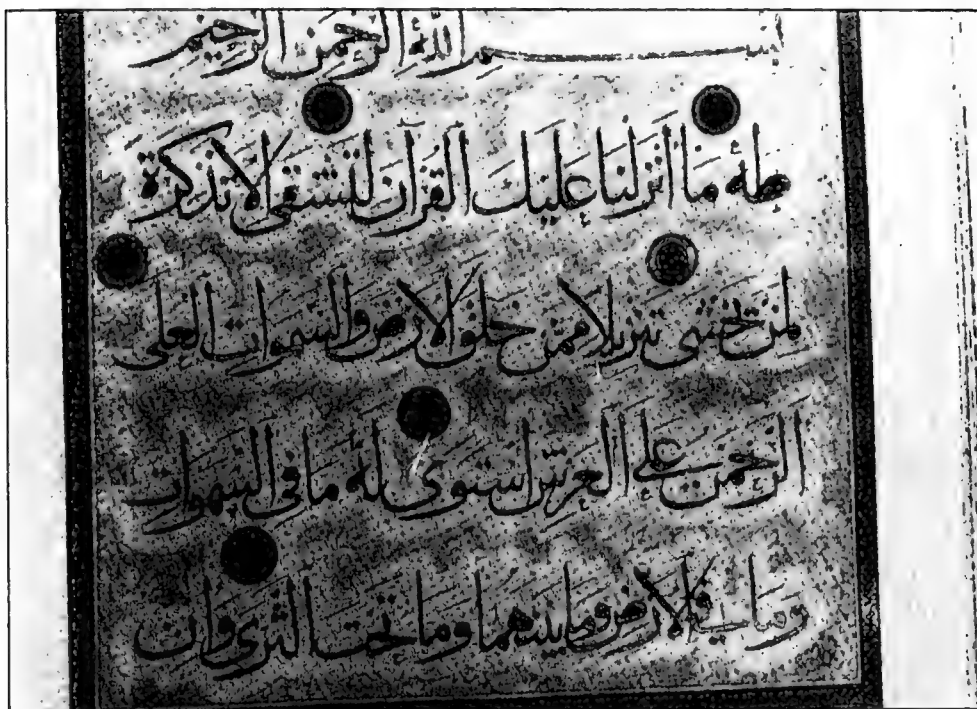 بسم الله الرحمن الرحيم
طه ما أنزلنا عليك القرآن لتشقى الا تذكرة
لمن يخشى تنزيلا ممن خلق الارض والسموات العلى
الرحمن على العرش استوى له ما في السموات
وما في الارض وما بينهما وما تحت الثرى وان